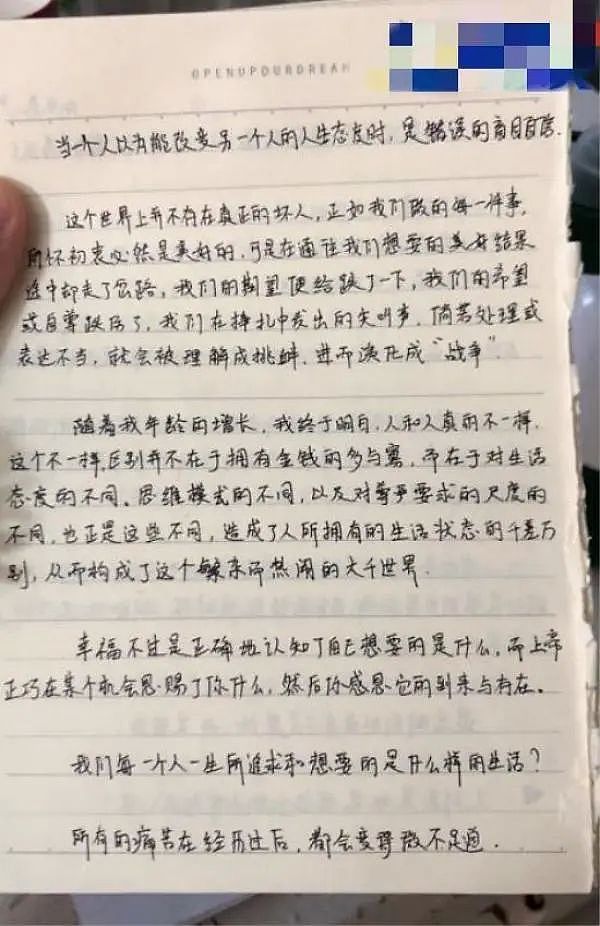 OPENUPOURDREAM
当一个人以为能改变另一个人的人生态度时，是错误的盲目自信.
这个世界上并不存在真正的坏人，正如我们做的每一件事，
所怀初衷必然是美好的，可是在通往我们想要的美好结果
途中却走了岔路，我们的期望便给跌了一下，我们的希望
或自尊跌伤了，我们在挣扎中发出的尖叫声，倘若处理或
表达不当，就会被理解成挑衅、进而演化成“战争”.
随着我年龄的增长，我终于明白，人和人真的不一样.
这个不一样，区别并不在于拥有金钱的多与寡，而在于对生活
态度的不同、思维模式的不同，以及对尊严要求的尺度的
不同，也正是这些不同，造成了人所拥有的生活状态的千差万
别，从而构成了这个繁杂而热闹的大千世界.
幸福不过是正确地认知了自己想要的是什么，而上帝
正巧在某个机会恩赐了你什么，然后你感恩它的到来与存在。
我们每一个人一生所追求和想要的是什么样的生活？
所有的痛苦在经历过后，都会变得微不足道.